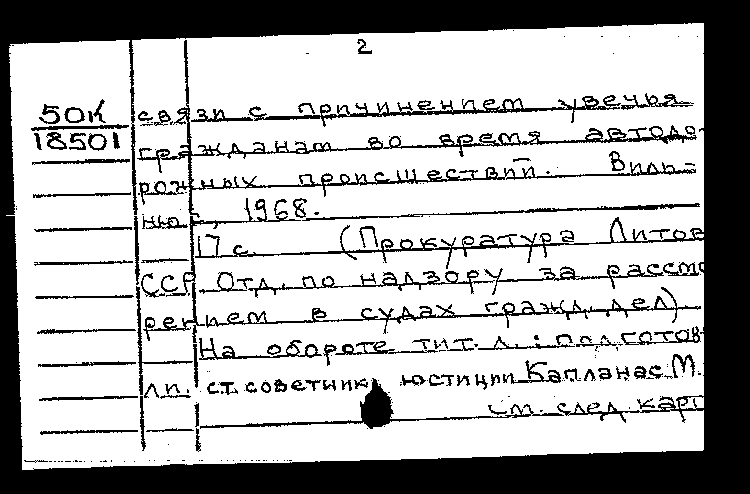 2
50К связи с причинением увечья
18501 гражданам во время автодо-
рожных происшествий. Виль-
нюс, 1968.
17 с. (Прокуратура Литов
ССР. Отд. по надзору за рассмо
рением в судах гражд. дел).
На обороте тит. л.: подготов-
ил ст. советник юстиции Капланас М.
см. след. карт